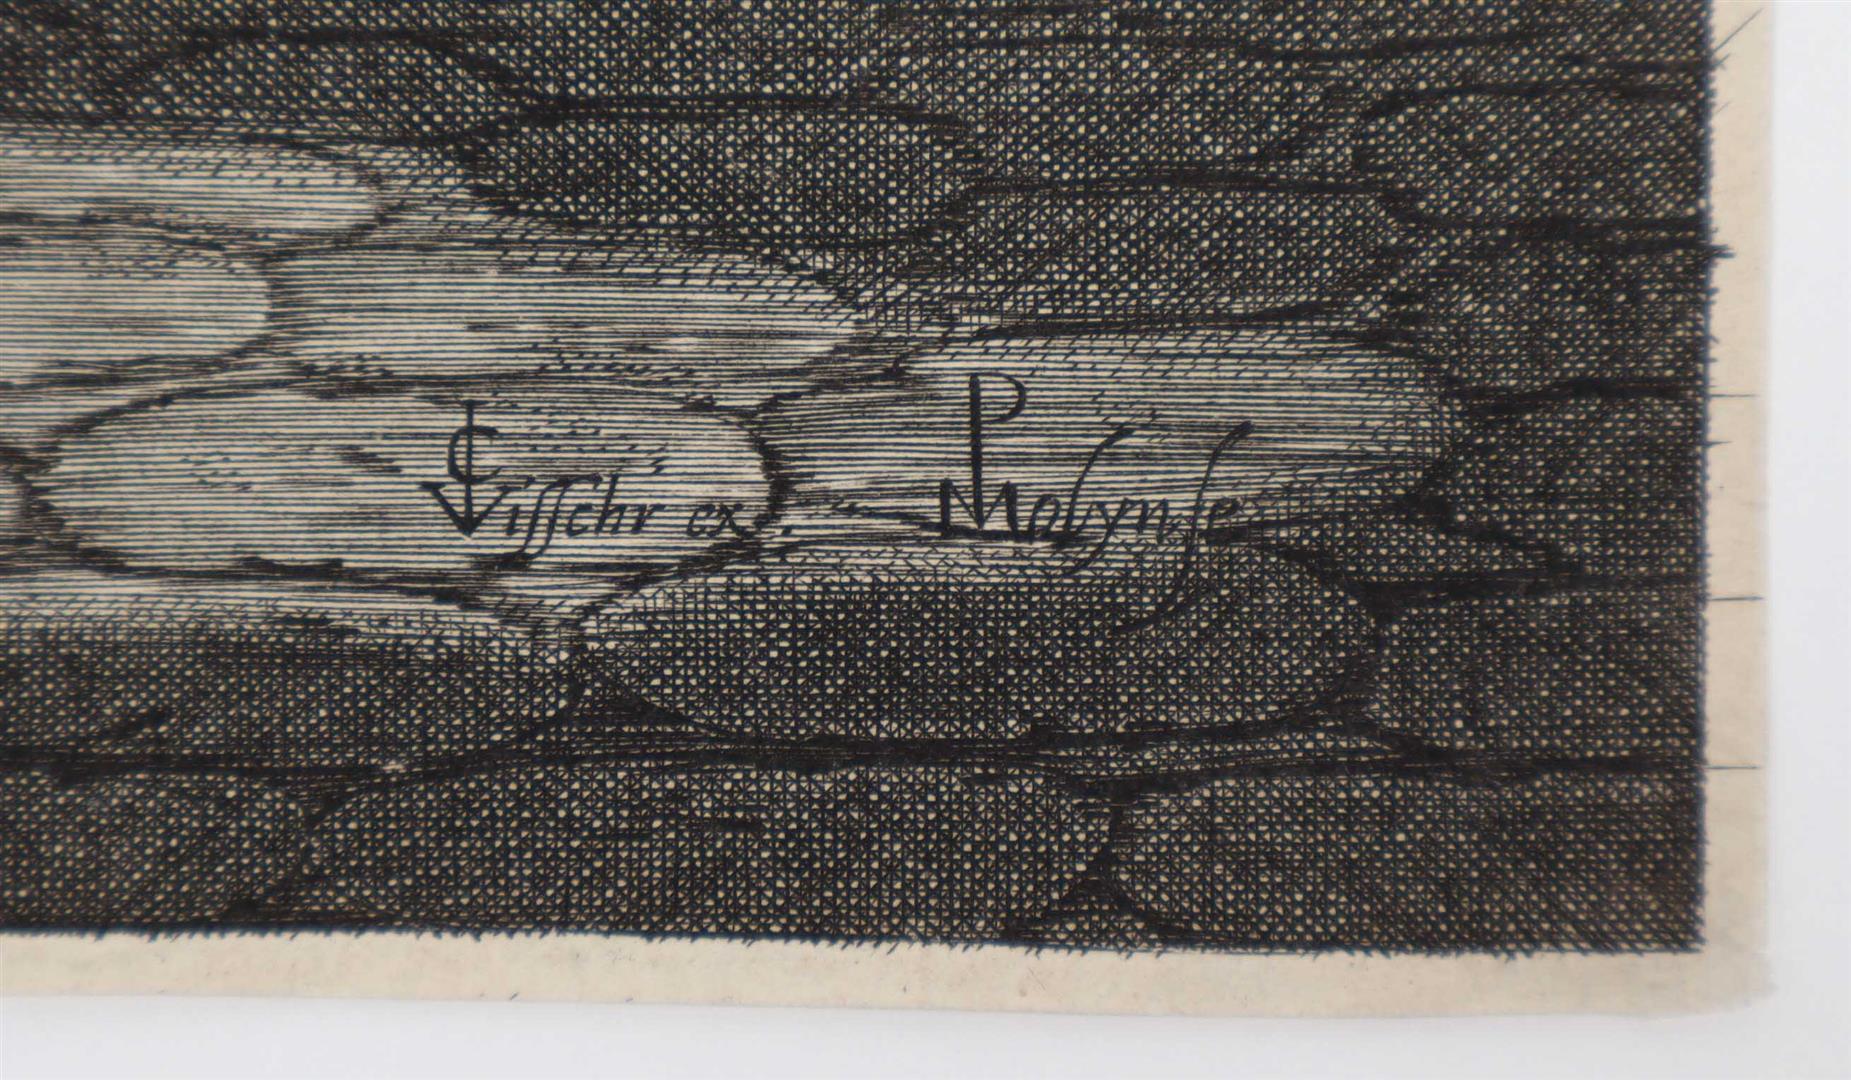 CIVisschr ex.
PMolyn fe